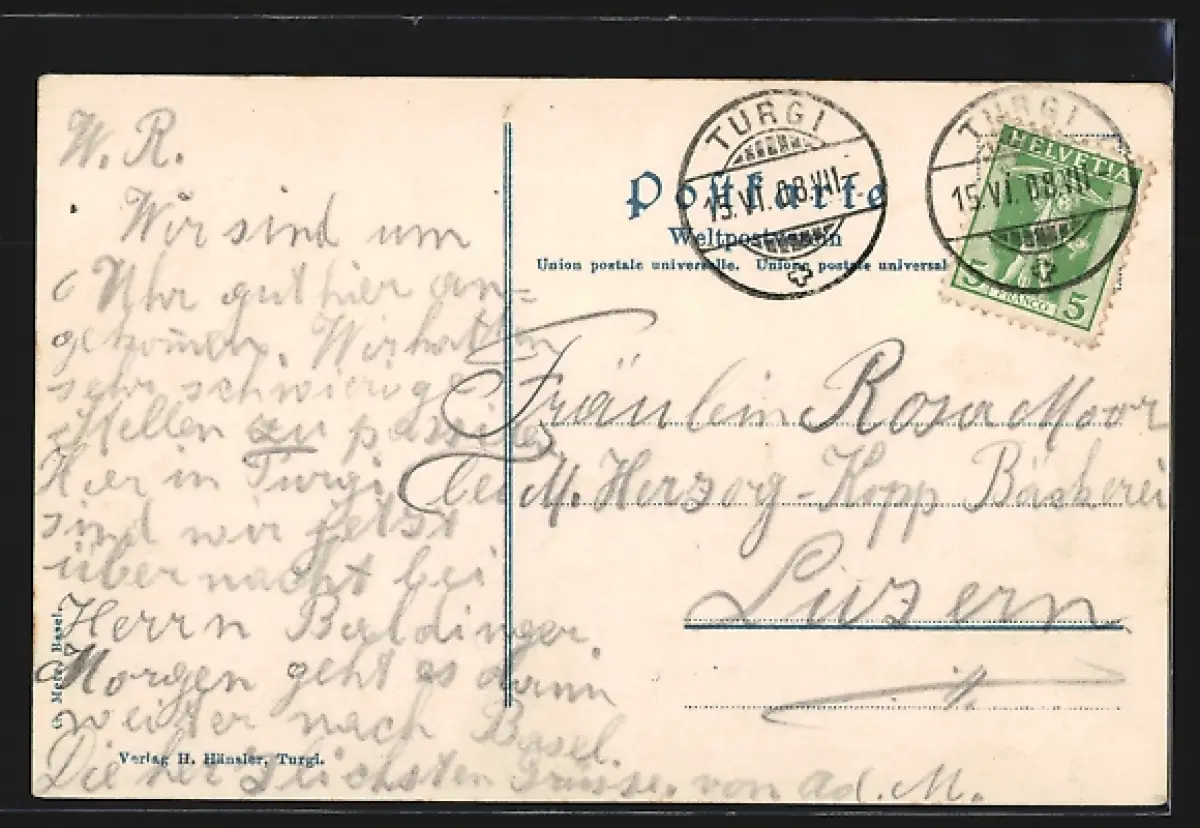 W. R.
Wir sind um
6 Uhr gut hier an=
gekom̄en. Wir hatten
sehr schwierige
Stellen zu passier
Hier in Turgi
sind wir jetzt
über nacht bei
Herrn Baldinger.
Morgen geht es dann
weiter nach Basel.
Die herzlichsten Grüsse. von Ad. M.
Verlag H. Hänsler, Turgi.
Basel
Postkarte
Weltpostverein
Union postale universelle. Unione postale universal
TURGI
15.VI.08.VII
TURGI
15.VI.08.VII
HELVETIA
5 FRANCO 5
Fräulein Rosa Moor
bei M. Herzog-Kopp Bäckerei
Luzern